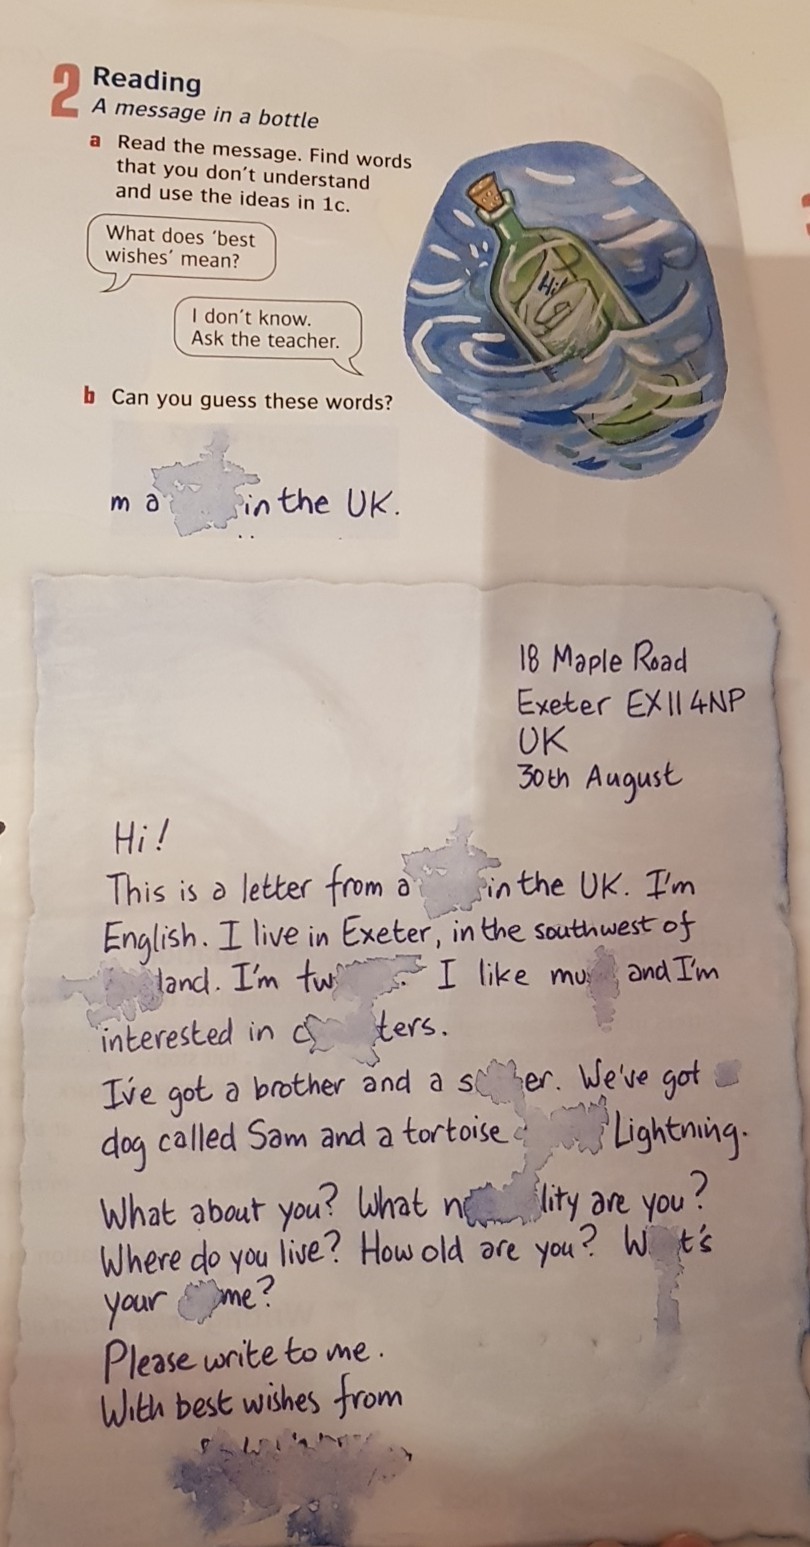 2 Reading
A message in a bottle
a Read the message. Find words
that you don't understand
and use the ideas in 1c.
What does 'best
wishes' mean?
I don't know.
Ask the teacher.
Hi!
b Can you guess these words?
m a in the UK.
18 Maple Road
Exeter EX11 4NP
UK
30th August
Hi!
This is a letter from a in the UK. I'm
English. I live in Exeter, in the southwest of
land. I'm tw I like mu and I'm
interested in c ters.
I've got a brother and a s er. We've got
dog called Sam and a tortoise Lightning.
What about you? What n lity are you?
Where do you live? How old are you? W t's
your me?
Please write to me.
With best wishes from